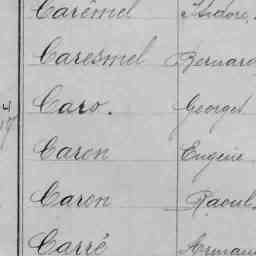 Carêmel Isidore,
Caresmel Bernard
Caro. Georges
Caron Eugène
Caron Raoul
Carré Armand